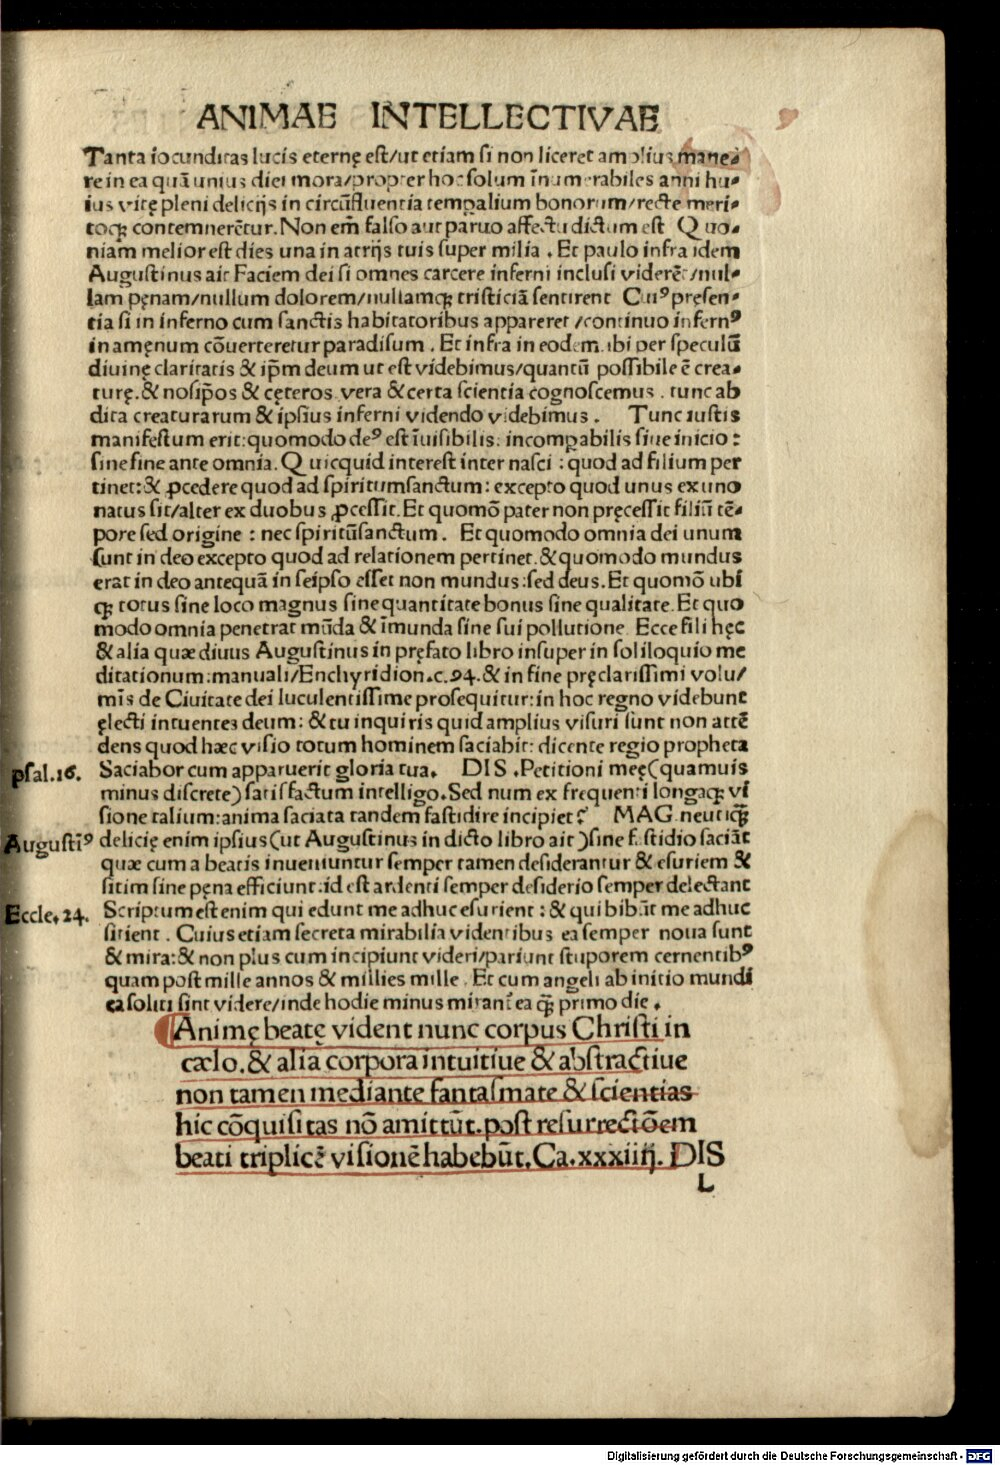 ANIMAE INTELLECTIVAE
Tanta iocunditas lucis eternę est/ut etiam si non liceret amplius mane⸗
re in ea quā unius diei mora/propter hoc solum īnumerabiles anni hu⸗
ius vitę pleni delicijs in circūfluentia temꝑalium bonorum/recte meri⸗
toqꝫ contemnerētur. Non em̄ falso aut paruo affectu dictum est Quo⸗
niam melior est dies una in atrijs tuis super milia . Et paulo infra idem
Augustinus ait Faciem dei si omnes carcere inferni inclusi viderēt/nul⸗
lam pęnam/nullum dolorem/nullamqꝫ tristiciā sentirent Cuiꝰ pręsen⸗
tia si in inferno cum sanctis habitatoribus appareret /continuo infernꝰ
in amęnum cōuerteretur paradisum . Et infra in eodem. ibi per speculū
diuinę claritatis & ip̄m deum ut est videbimus/quantū possibile ē crea⸗
turę. & nosip̄os & cęteros vera & certa scientia cognoscemus . tunc ab
dita creaturarum & ipsius inferni videndo videbimus . Tunc iustis
manifestum erit: quomodo deꝰ est īuisibilis: incomꝑabilis siue inicio :
sine fine ante omnia. Quicquid interest inter nasci : quod ad filium per
tinet: & ꝓcedere quod ad spiritumsanctum : excepto quod unus ex uno
natus sit/alter ex duobus ꝓcessit. Et quomō pater non pręcessit filiū tē⸗
pore sed origine : nec spiritūsanctum . Et quomodo omnia dei unum
sunt in deo excepto quod ad relationem pertinet. & quomodo mundus
erat in deo antequā in seipso esset non mundus : sed deus. Et quomō ubi
qꝫ totus sine loco magnus sine quantitate bonus sine qualitate. Et quo
modo omnia penetrat mūda & īmunda sine sui pollutione Ecce fili hęc
& alia quæ diuus Augustinus in pręfato libro insuper in soliloquio me
ditationum: manuali/Enchyridion.c.94. & in fine pręclarissimi volu/
mīs de Ciuitate dei luculentissime prosequitur: in hoc regno videbunt
ęlecti intuentes deum : & tu inquiris quid amplius visuri sunt non attē
dens quod hæc visio totum hominem saciabit: dicente regio propheta
psal.16. Saciabor cum apparuerit gloria tua. DIS .Petitioni meę(quamuis
minus discrete) satisfactum intelligo. Sed num ex frequenti longaqꝫ vi
sione talium: anima saciata tandem fastidire incipiet? MAG neutiqꝫ̄
Augustīꝰ delicię enim ipsius(ut Augustinus in dicto libro ait )sine fastidio saciāt
quæ cum a beatis inueniuntur semper tamen desiderantur & esuriem &
sitim sine pęna efficiunt: id est ardenti semper desiderio semper delectant
Eccle.24. Scriptum est enim qui edunt me adhuc esurient : & qui bibūt me adhuc
sitient . Cuius etiam secreta mirabilia videntibus ea semper noua sunt
& mira: & non plus cum incipiunt videri/pariunt stuporem cernentibꝰ
quam post mille annos & millies mille . Et cum angeli ab initio mundi
ea soliti sint videre/inde hodie minus mirant̄ ea qꝫ̄ primo die .
Animę beatę vident nunc corpus Christi in
cælo. & alia corpora intuitiue & abstractiue
non tamen mediante fantasmate & scientias
hic cōquisitas nō amittūt. post resurrectiōem
beati triplicē visionē habebūt. Ca.xxxiiij. DIS
L
Digitalisierung gefördert durch die Deutsche Forschungsgemeinschaft - DFG